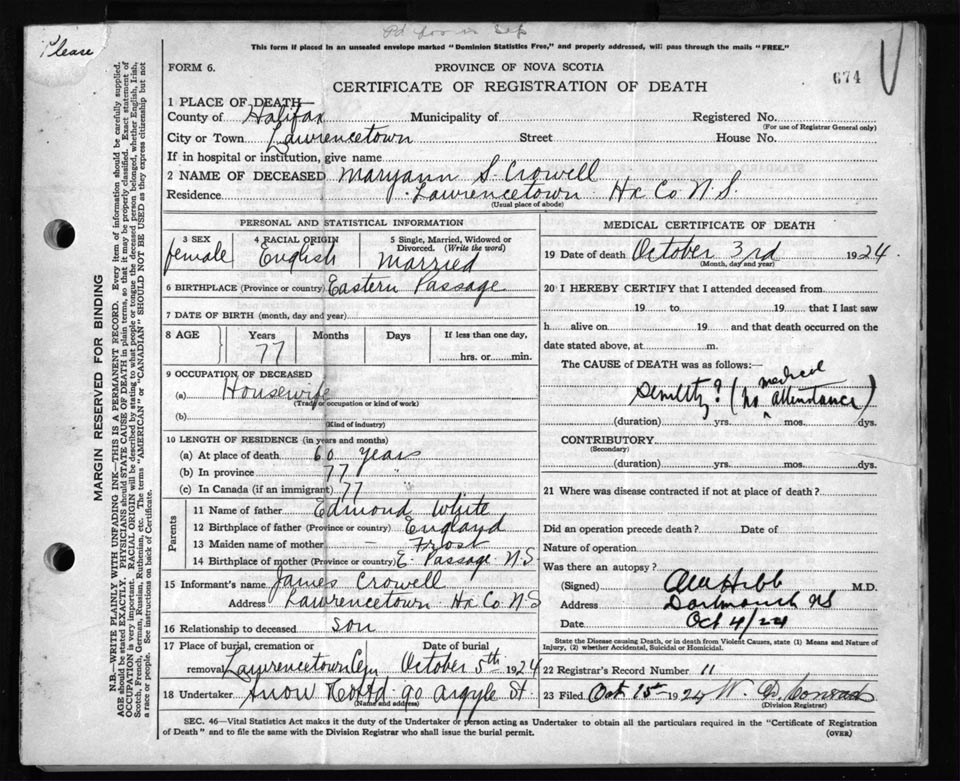 Please
Pd for in Sep
This form if placed in an unsealed envelope marked "Dominion Statistics Free," and properly addressed, will pass through the mails "FREE."
FORM 6.
PROVINCE OF NOVA SCOTIA
674
CERTIFICATE OF REGISTRATION OF DEATH
1 PLACE OF DEATH—
County of Halifax Municipality of Registered No.
(For use of Registrar General only)
City or Town Lawrencetown Street House No.
If in hospital or institution, give name
2 NAME OF DECEASED Maryann S. Crowell
Residence Lawrencetown Hx Co N.S.
(Usual place of abode)
PERSONAL AND STATISTICAL INFORMATION
3 SEX
female
4 RACIAL ORIGIN
English
5 Single, Married, Widowed or
Divorced. (Write the word)
Married
6 BIRTHPLACE (Province or country) Eastern Passage
7 DATE OF BIRTH (month, day and year)
8 AGE Years Months Days If less than one day,
77 hrs. or min.
9 OCCUPATION OF DECEASED
(a) Housewife
(Trade or occupation or kind of work)
(b)
(Kind of industry)
10 LENGTH OF RESIDENCE (in years and months)
(a) At place of death 60 years
(b) In province 77 "
(c) In Canada (if an immigrant) 77
Parents
11 Name of father Edmond White
12 Birthplace of father (Province or country) England
13 Maiden name of mother — Frost
14 Birthplace of mother (Province or country) E. Passage N.S.
15 Informant's name James Crowell
Address Lawrencetown Hx Co N S
16 Relationship to deceased son
17 Place of burial, cremation or Date of burial
removal Lawrencetown Cem October 5th 1924
18 Undertaker Snow & Co Ltd 90 Argyle St
(Name and address)
MEDICAL CERTIFICATE OF DEATH
19 Date of death October 3rd 1924.
(Month, day and year)
20 I HEREBY CERTIFY that I attended deceased from
19 to 19 that I last saw
h alive on 19 and that death occurred on the
date stated above, at m.
The CAUSE of DEATH was as follows:—
medical
Senility? (no attendance)
(duration) yrs. mos. dys.
CONTRIBUTORY
(Secondary)
(duration) yrs. mos. dys.
21 Where was disease contracted if not at place of death?
Did an operation precede death? Date of
Nature of operation
Was there an autopsy?
(Signed) Hebb M.D.
Address Dartmouth NS
Date Oct 4/24
State the Disease causing Death, or in death from Violent Causes, state (1) Means and Nature of
Injury, (2) whether Accidental, Suicidal or Homicidal.
22 Registrar's Record Number 11
23 Filed Oct 15th 1924 W. D. Conrad
(Division Registrar)
SEC. 46—Vital Statistics Act makes it the duty of the Undertaker or person acting as Undertaker to obtain all the particulars required in the "Certificate of Registration
of Death" and to file the same with the Division Registrar who shall issue the burial permit. (OVER)
MARGIN RESERVED FOR BINDING
N.B.—WRITE PLAINLY WITH UNFADING INK—THIS IS A PERMANENT RECORD. Every item of information should be carefully supplied.
AGE should be stated EXACTLY. PHYSICIANS should STATE CAUSE OF DEATH in plain terms, so that it may be properly classified. Exact statement of
OCCUPATION is very important. RACIAL ORIGIN will be described by stating to what people or tongue the deceased person belonged, whether English, Irish,
Scotch, French, German, Russian, Ruthenian, etc. The terms "AMERICAN" or "CANADIAN" SHOULD NOT BE USED as they express citizenship but not
a race or people. See instructions on back of Certificate.